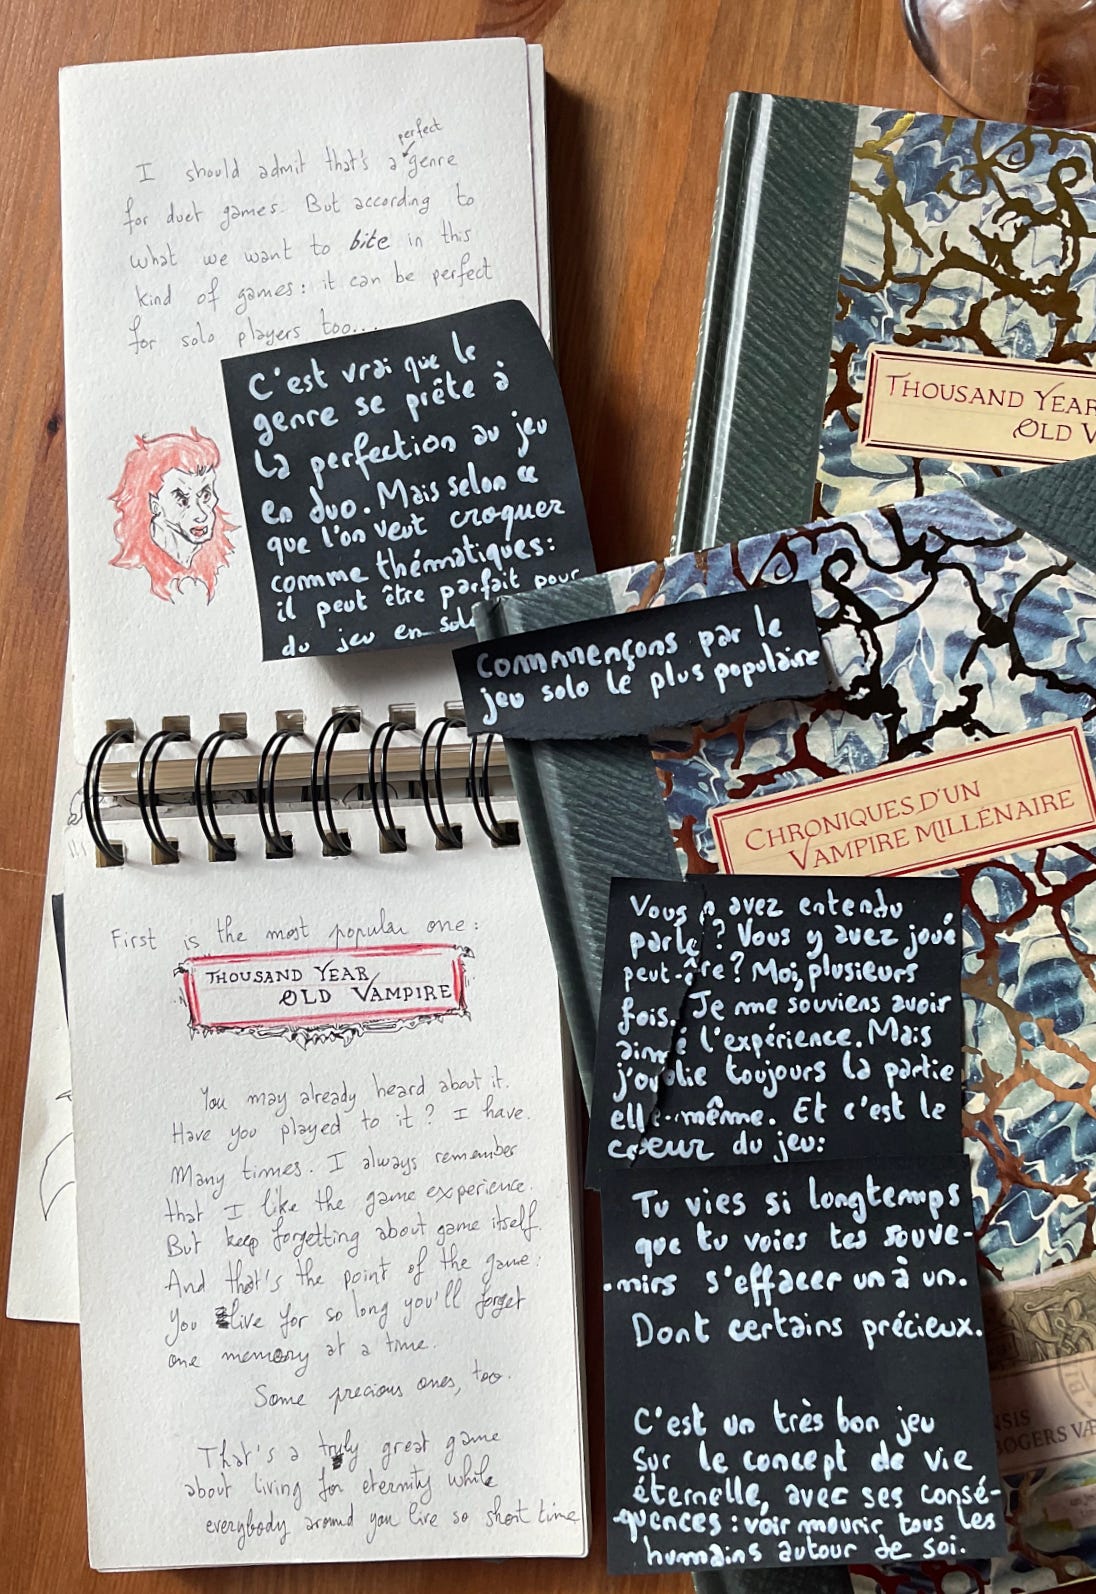 perfect
I should admit that's a genre
for duet games. But according to
what we want to bite in this
kind of games: it can be perfect
for solo players too...
C'est vrai que le
genre se prête à
la perfection au jeu
en duo. Mais selon ce
que l'on veut croquer
comme thématiques:
il peut être parfait pour
du jeu en solo
THOUSAND YEAR
OLD V
Commençons par le
jeu solo le plus populaire
CHRONIQUES D'UN
VAMPIRE MILLÉNAIRE
First is the most popular one:
THOUSAND YEAR
OLD VAMPIRE
You may already heard about it.
Have you played to it? I have.
Many times. I always remember
that I like the game experience.
But keep forgetting about game itself.
And that's the point of the game:
You live for so long you'll forget
one memory at a time.
Some precious ones, too.
That's a truly great game
about living for eternity while
everybody around you live so short time
Vous avez entendu
parle ? Vous y avez joué
peut-être? Moi, plusieurs
fois. Je me souviens avoir
aimé l'expérience. Mais
j'oublie toujours la partie
elle-même. Et c'est le
cœur du jeu:
Tu vies si longtemps
que tu voies tes souve-
nirs s'effacer un à un.
Dont certains précieux.
C'est un très bon jeu
sur le concept de vie
éternelle, avec ses consé-
quences: voir mourir tous les
humains autour de soi.
NSIS
BOGERS VÆ